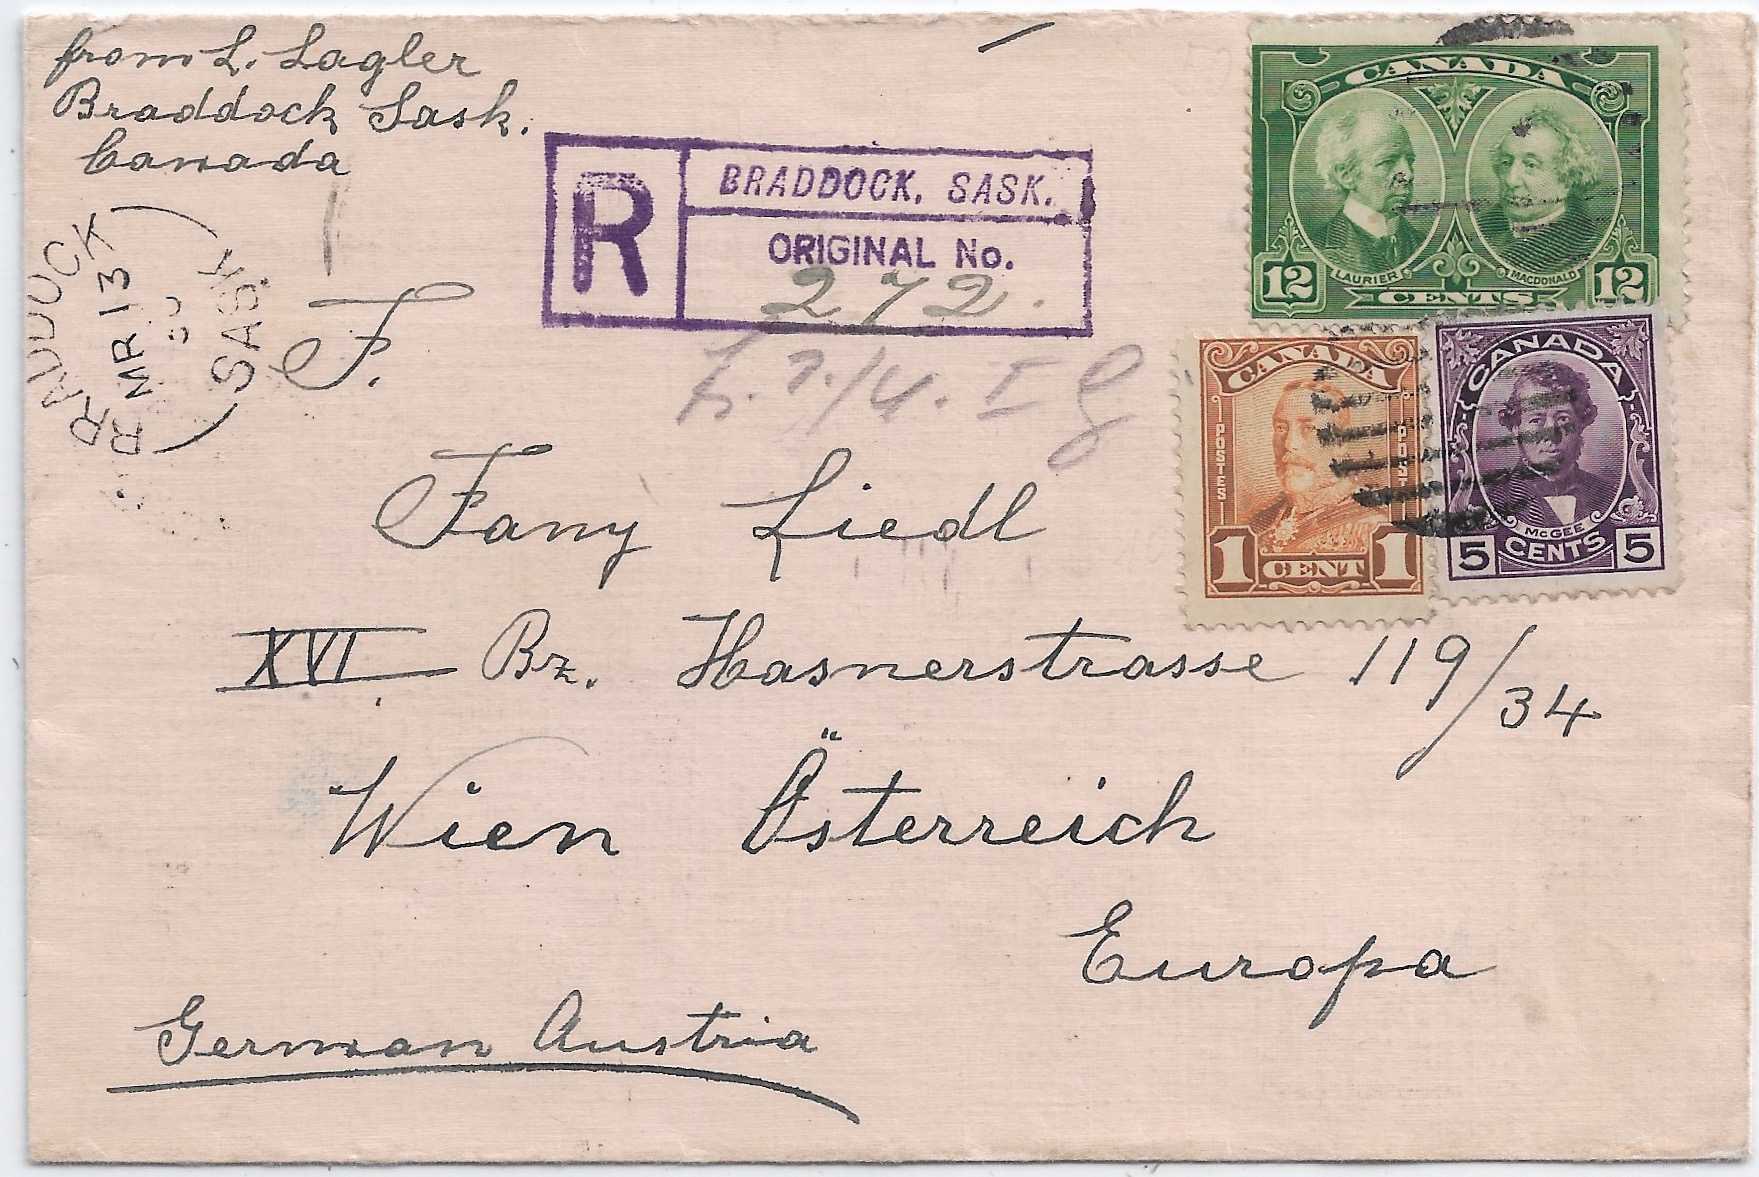 from L. Lagler
Braddock Sask.
Canada
BRADDOCK
MR 13
30
SASK.
R
BRADDOCK, SASK.
ORIGINAL No.
272.
CANADA
LAURIER
MACDONALD
12 CENTS 12
CANADA
POSTES
POST
1 CENT 1
CANADA
McGEE
5 CENTS 5
F.
Fany Liedl
XVI Bz. Hasnerstrasse 119/34
Wien Österreich
Europa
German Austria